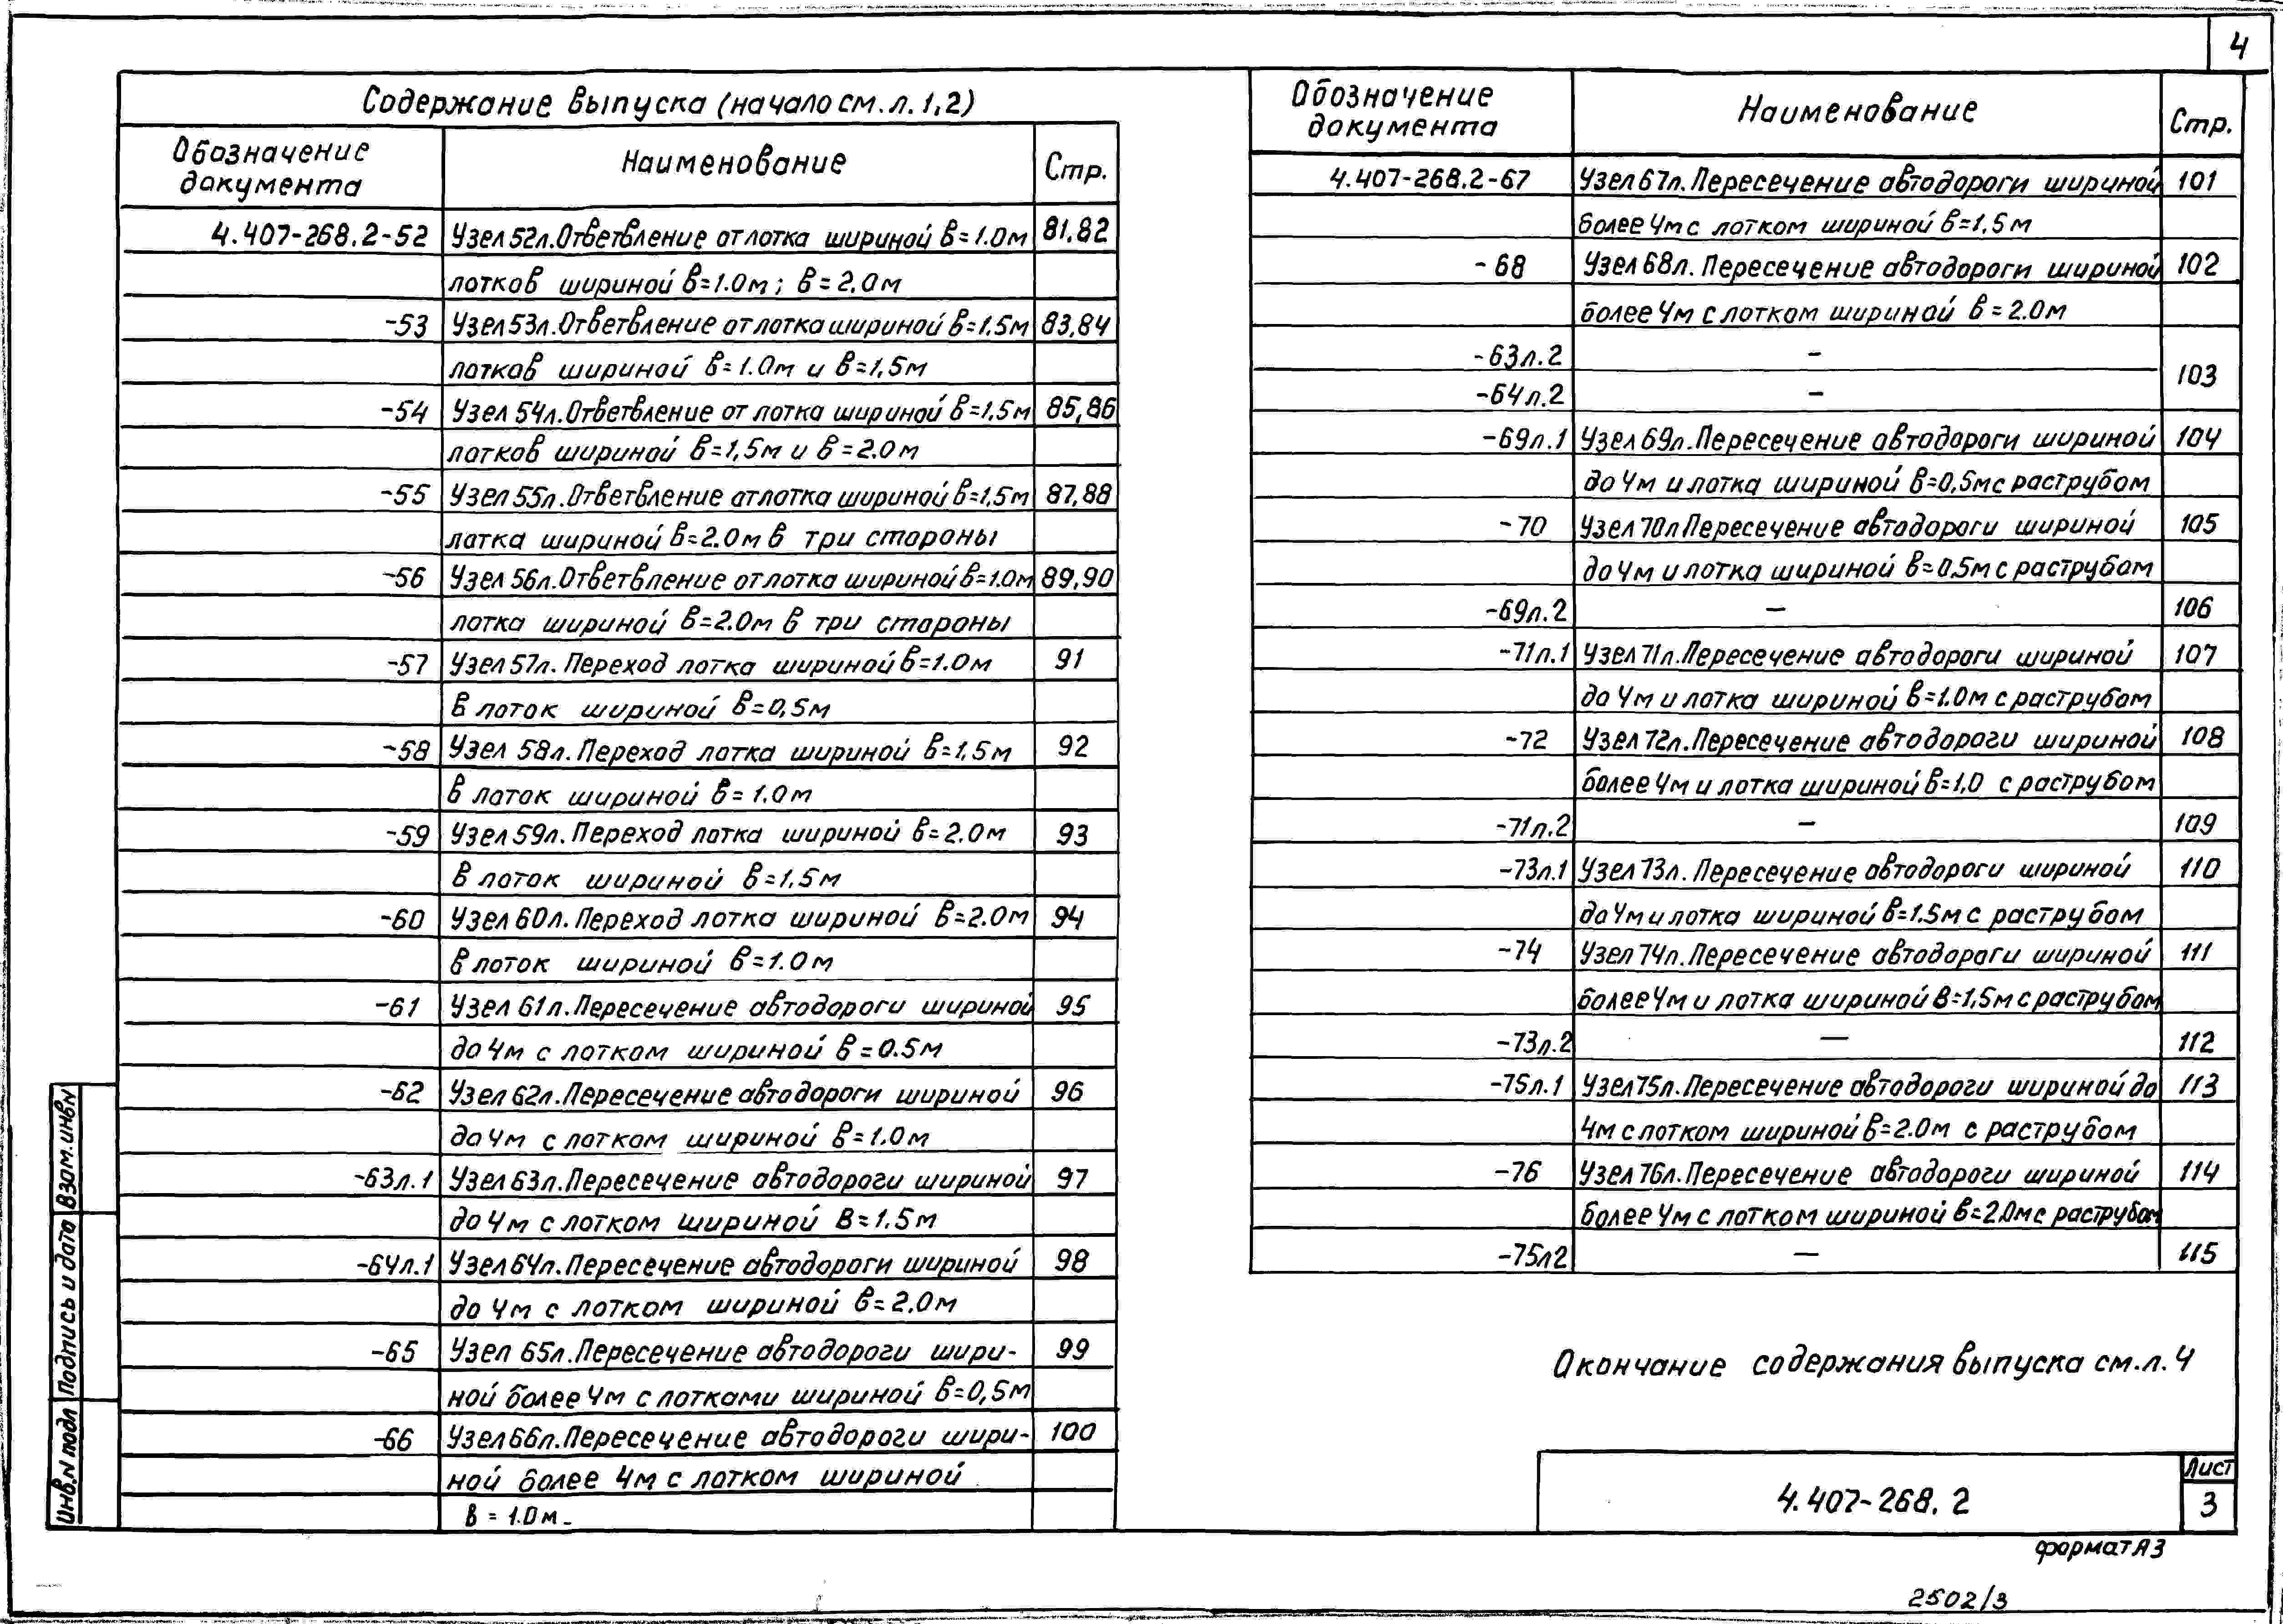 4
Содержание выпуска (начало см. л. 1,2)
Обозначение документа Наименование Стр.
4.407-268.2-52 Узел 52л. Ответвление от лотка шириной в=1.0м 81,82
лотков шириной в=1.0м; в=2,0м
-53 Узел 53л. Ответвление от лотка шириной в=1.5м 83,84
лотков шириной в=1.0м и в=1,5м
-54 Узел 54л. Ответвление от лотка шириной в=1,5м 85,86
лотков шириной в=1,5м и в=2.0м
-55 Узел 55л. Ответвление от лотка шириной в=1,5м 87,88
лотка шириной в=2.0м в три стороны
-56 Узел 56л. Ответвление от лотка шириной в=1.0м 89,90
лотка шириной в=2.0м в три стороны
-57 Узел 57л. Переход лотка шириной в=1.0м 91
в лоток шириной в=0,5м
-58 Узел 58л. Переход лотка шириной в=1,5м 92
в лоток шириной в=1.0м
-59 Узел 59л. Переход лотка шириной в=2.0м 93
в лоток шириной в=1,5м
-60 Узел 60л. Переход лотка шириной в=2.0м 94
в лоток шириной в=1.0м
-61 Узел 61л. Пересечение автодороги шириной 95
до 4м с лотком шириной в=0.5м
-62 Узел 62л. Пересечение автодороги шириной 96
до 4м с лотком шириной в=1.0м
-63л.1 Узел 63л. Пересечение автодороги шириной 97
до 4м с лотком шириной в=1.5м
-64л.1 Узел 64л. Пересечение автодороги шириной 98
до 4м с лотком шириной в=2.0м
-65 Узел 65л. Пересечение автодороги шири- 99
ной более 4м с лотками шириной в=0,5м
-66 Узел 66л. Пересечение автодороги шири- 100
ной более 4м с лотком шириной
в = 1.0м.
Обозначение документа Наименование Стр.
4.407-268.2-67 Узел 67л. Пересечение автодороги шириной 101
более 4м с лотком шириной в=1,5м
-68 Узел 68л. Пересечение автодороги шириной 102
более 4м с лотком шириной в=2.0м
-63л.2 – 103
-64л.2 –
-69л.1 Узел 69л. Пересечение автодороги шириной 104
до 4м и лотка шириной в=0,5м с раструбом
-70 Узел 70л Пересечение автодороги шириной 105
до 4м и лотка шириной в=0.5м с раструбом
-69л.2 – 106
-71л.1 Узел 71л. Пересечение автодороги шириной 107
до 4м и лотка шириной в=1.0м с раструбом
-72 Узел 72л. Пересечение автодороги шириной 108
более 4м и лотка шириной в=1,0 с раструбом
-71л.2 – 109
-73л.1 Узел 73л. Пересечение автодороги шириной 110
до 4м и лотка шириной в=1.5м с раструбом
-74 Узел 74л. Пересечение автодороги шириной 111
более 4м и лотка шириной в=1,5м с раструбом
-73л.2 – 112
-75л.1 Узел 75л. Пересечение автодороги шириной до 113
4м с лотком шириной в=2.0м с раструбом
-76 Узел 76л. Пересечение автодороги шириной 114
более 4м с лотком шириной в=2.0м с раструбом
-75л2 – 115
Окончание содержания выпуска см. л. 4
Взам. инв N
Подпись и дата
Инв. N подл
4.407-268.2
Лист
3
формат А3
2502/3